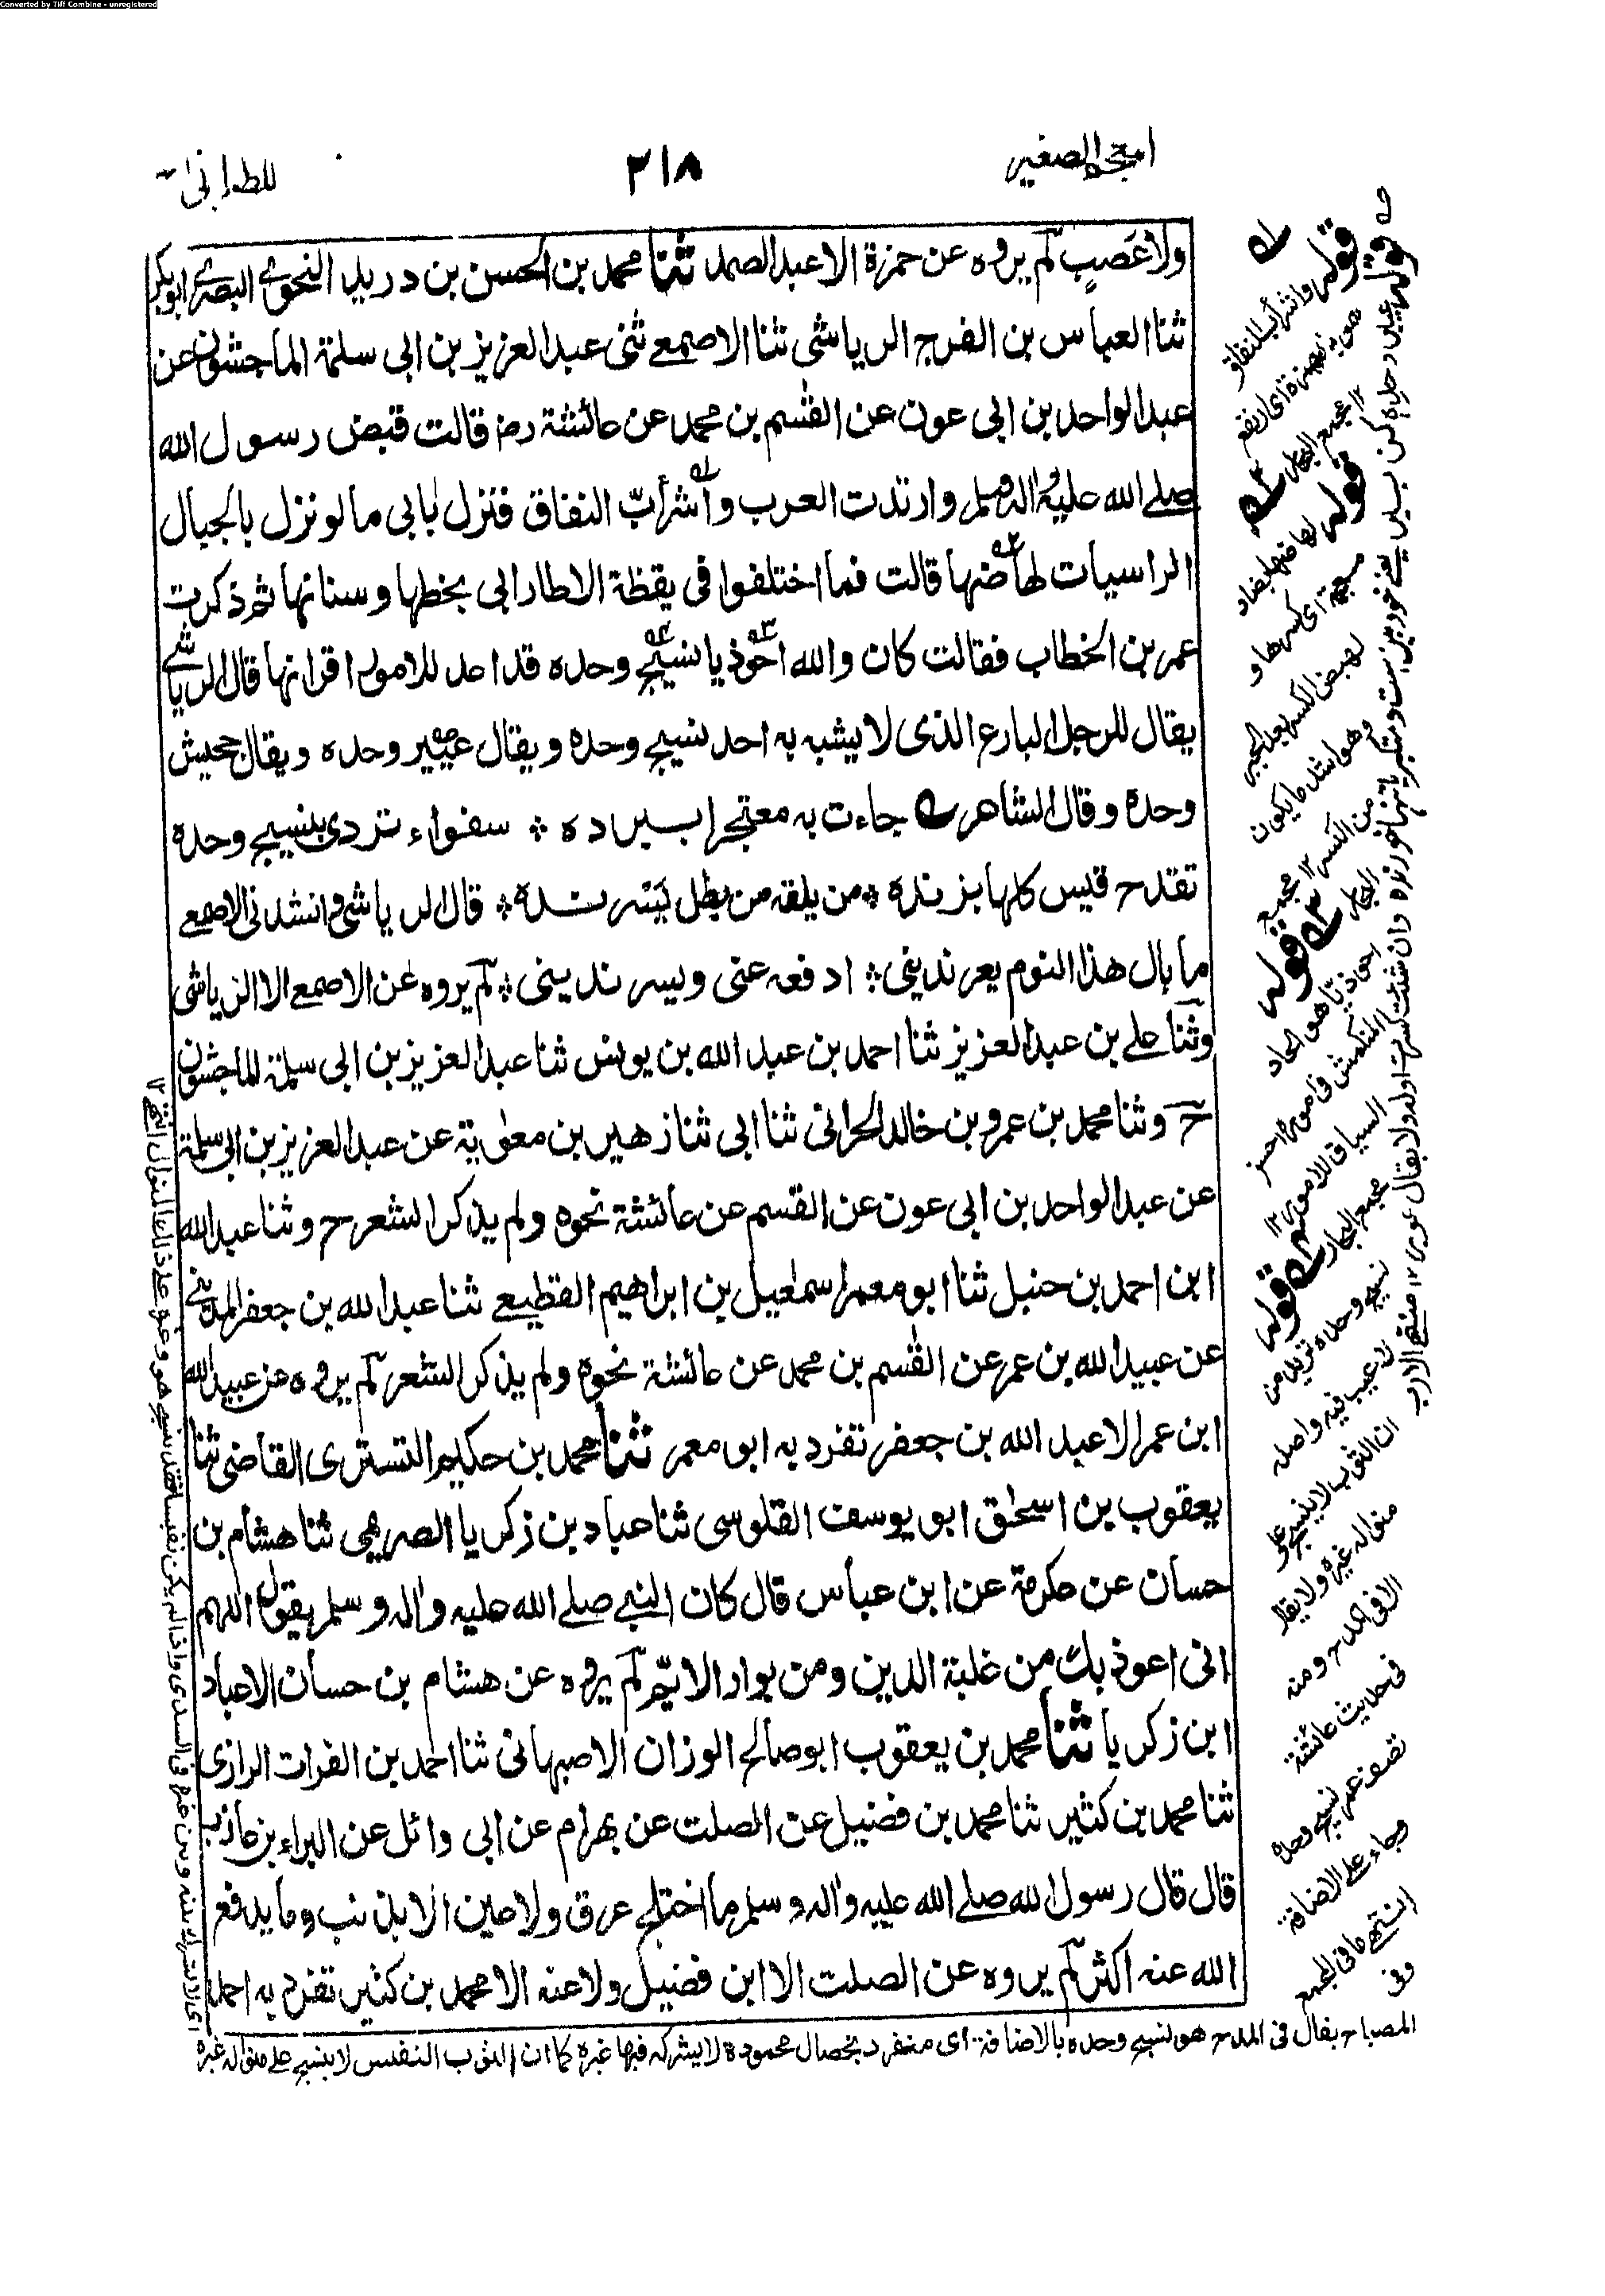 Converted by Tiff Combine - unregistered
المعجم الصغير
٢١٨
للطبرانى
ولا عَصَبٍ لم يروه عن حمزة الا عبد الصمد ثنا محمد بن الحسن بن دريد النحوي البصري ابو بكر
ثنا العباس بن الفرج الرياشى ثنا الاصمعى ثنى عبد العزيز بن ابى سلمة الماجشون عن
عبد الواحد بن ابى عون عن القسم بن محمد عن عائشة رض قالت قبض رسول الله
صلے الله عليه واله وسلم وارتدت العرب واشرأبّ النفاق فنزل بابى ما لو نزل بالجبال
الراسيات لهاضها قالت فما اختلفوا فى يقظة الا طار ابى بخطها وسنانها ثم ذكرت
عمر بن الخطاب فقالت كان والله احوذيا نسيج وحده قد اعد للامور اقرانها قال الرياشے
يقال للرجل البارع الذى لا يشبه به احد نسيج وحده ويقال عيير وحده ويقال جحيش
وحده وقال الشاعر جاءت به معتجرا ببرده ؞ سفواء تردى بنسيج وحده
تقدح قيس كلها بزنده ؞ من يلقه من بطل يسرنده ؞ قال الرياشى وانشدنى الاصمعے
ما بال هذا النوم يغرندينى ؞ ادفعه عنى ويسرندينى ؞ لم يروه عن الاصمعى الا الرياشى
وثنا علے بن عبد العزيز ثنا احمد بن عبد الله بن يونس ثنا عبد العزيز بن ابى سلمة الماجشون
ح وثنا محمد بن عمرو بن خالد الحرانى ثنا ابى ثنا زهير بن معوية عن عبد العزيز بن ابى سلمة
عن عبد الواحد بن ابى عون عن القسم عن عائشة نحوه ولم يذكر الشعر ح وثنا عبد الله
ابن احمد بن حنبل ثنا ابو معمر اسمعيل بن ابراهيم القطيعے ثنا عبد الله بن جعفر المدينے
عن عبيد الله بن عمر عن القسم بن محمد عن عائشة نحوه ولم يذكر الشعر لم يروه عن عبيد الله
ابن عمر الا عبد الله بن جعفر تفرد به ابو معمر ثنا محمد بن حكيم التسترى القاضى ثنا
يعقوب بن اسحق ابو يوسف القلوسى ثنا عباد بن زكريا الصريمى ثنا هشام بن
حسان عن عكرمة عن ابن عباس قال كان النبے صلے الله عليه واله وسلم يقول اللهم
انى اعوذ بك من غلبة الدين ومن بوار الايّم لم يروه عن هشام بن حسان الا عباد
ابن زكريا ثنا محمد بن يعقوب ابو صالح الوزان الاصبهانى ثنا احمد بن الفرات الرازى
ثنا محمد بن كثير ثنا محمد بن فضيل عن الصلت عن بهرام عن ابى وائل عن البراء بن عازب
قال قال رسول الله صلے الله عليه واله وسلم ما اختلج عرق ولا عين الا بذنب وما يدفع
الله عنه اكثر لم يروه عن الصلت الا ابن فضيل ولا عنه الا محمد بن كثير تفرد به احمد
قوله واشرأب النفاق
مجمع البحار
قوله لهاضها بضاد
معجمة اى كسرها و
الهيض الكسر بعد الجبر
وهو اشد ما يكون
من الكسر ١٢ مجمع
البحار
قوله
احوذيا هو الحاد
المنكمش فى اموره احسن
السياق للامور ١٢
مجمع البحار
قوله
نسيج وحده تريد من
لا عيب فيه واصله
ان الثوب لا ينسج على
منواله غيره ولا يقال
الا فى المدح ومنه
فى حديث عائشة
تصف عمر نسيج وحده
وجاء على الاضافة
انتهى ما فى المجمع
وفى
المصباح يقال فى المدح هو نسيج وحده بالاضافة اى منفرد بخصال محمودة لا يشركه فيها غيره كما ان الثوب النفيس لا ينسج على منواله غيره